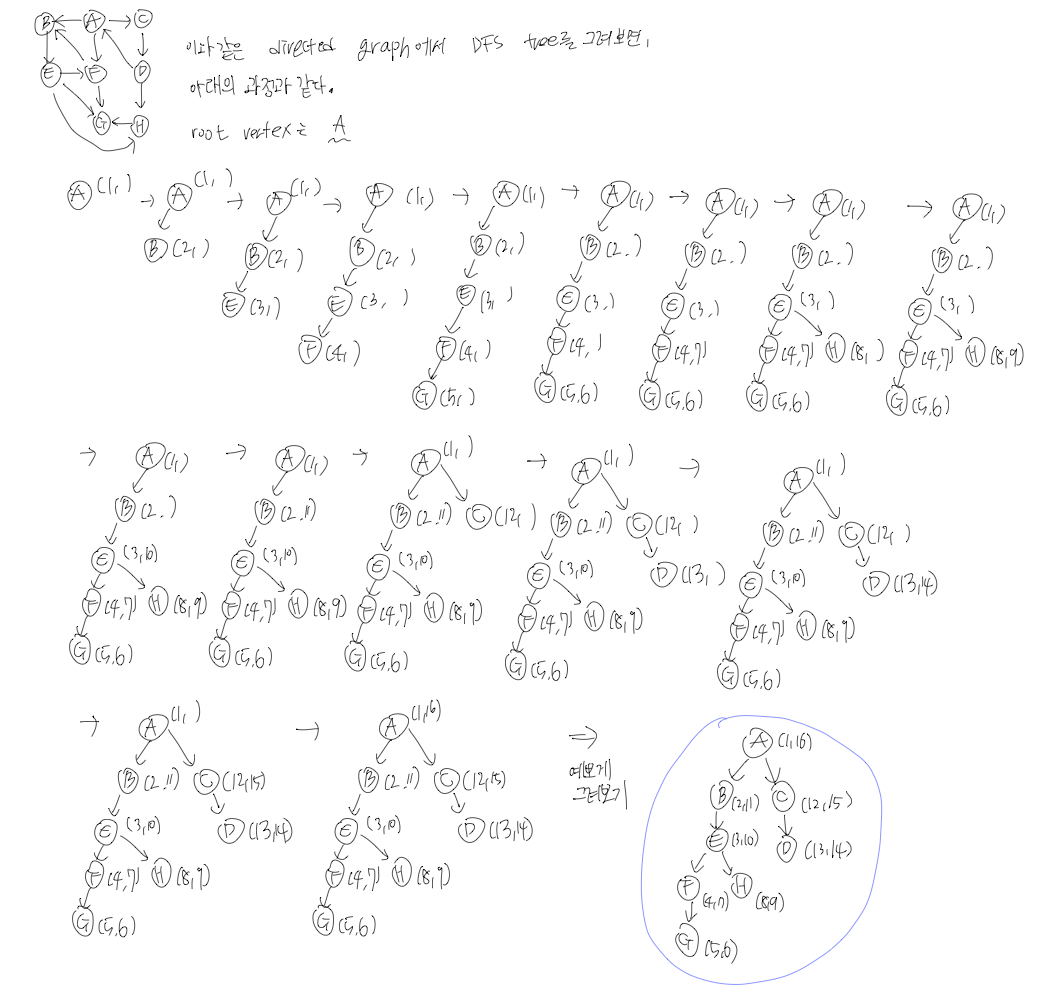 B A C
이와 같은 directed graph에서 DFS tree를 그려보면,
E F D
아래의 과정과 같다.
G H
root vertex는 A
A(1,) → A(1,) → A(1,) → A(1,) → A(1,) → A(1,) → A(1,) → A(1,) → A(1,)
B(2,) B(2,) B(2,) B(2,) B(2,) B(2,) B(2,) B(2,)
E(3,) E(3,) E(3,) E(3,) E(3,) E(3,) E(3,)
F(4,) F(4,) F(4,) F(4,7) F(4,7) H(8,) F(4,7) H(8,9)
G(5,) G(5,6) G(5,6) G(5,6) G(5,6)
→ A(1,) → A(1,) → A(1,) → A(1,) → A(1,)
B(2,) B(2,11) B(2,11) C(12,) B(2,11) C(12,) B(2,11) C(12,)
E(3,10) E(3,10) E(3,10) E(3,10) D(13,) E(3,10) D(13,14)
F(4,7) H(8,9) F(4,7) H(8,9) F(4,7) H(8,9) F(4,7) H(8,9) F(4,7) H(8,9)
G(5,6) G(5,6) G(5,6) G(5,6) G(5,6)
→ A(1,) → A(1,16) → A(1,16)
예쁘게
그려보기
B(2,11) C(12,15) B(2,11) C(12,15) B(2,11) C(12,15)
E(3,10) D(13,14) E(3,10) D(13,14) E(3,10) D(13,14)
F(4,7) H(8,9) F(4,7) H(8,9) F(4,7) H(8,9)
G(5,6) G(5,6) G(5,6)